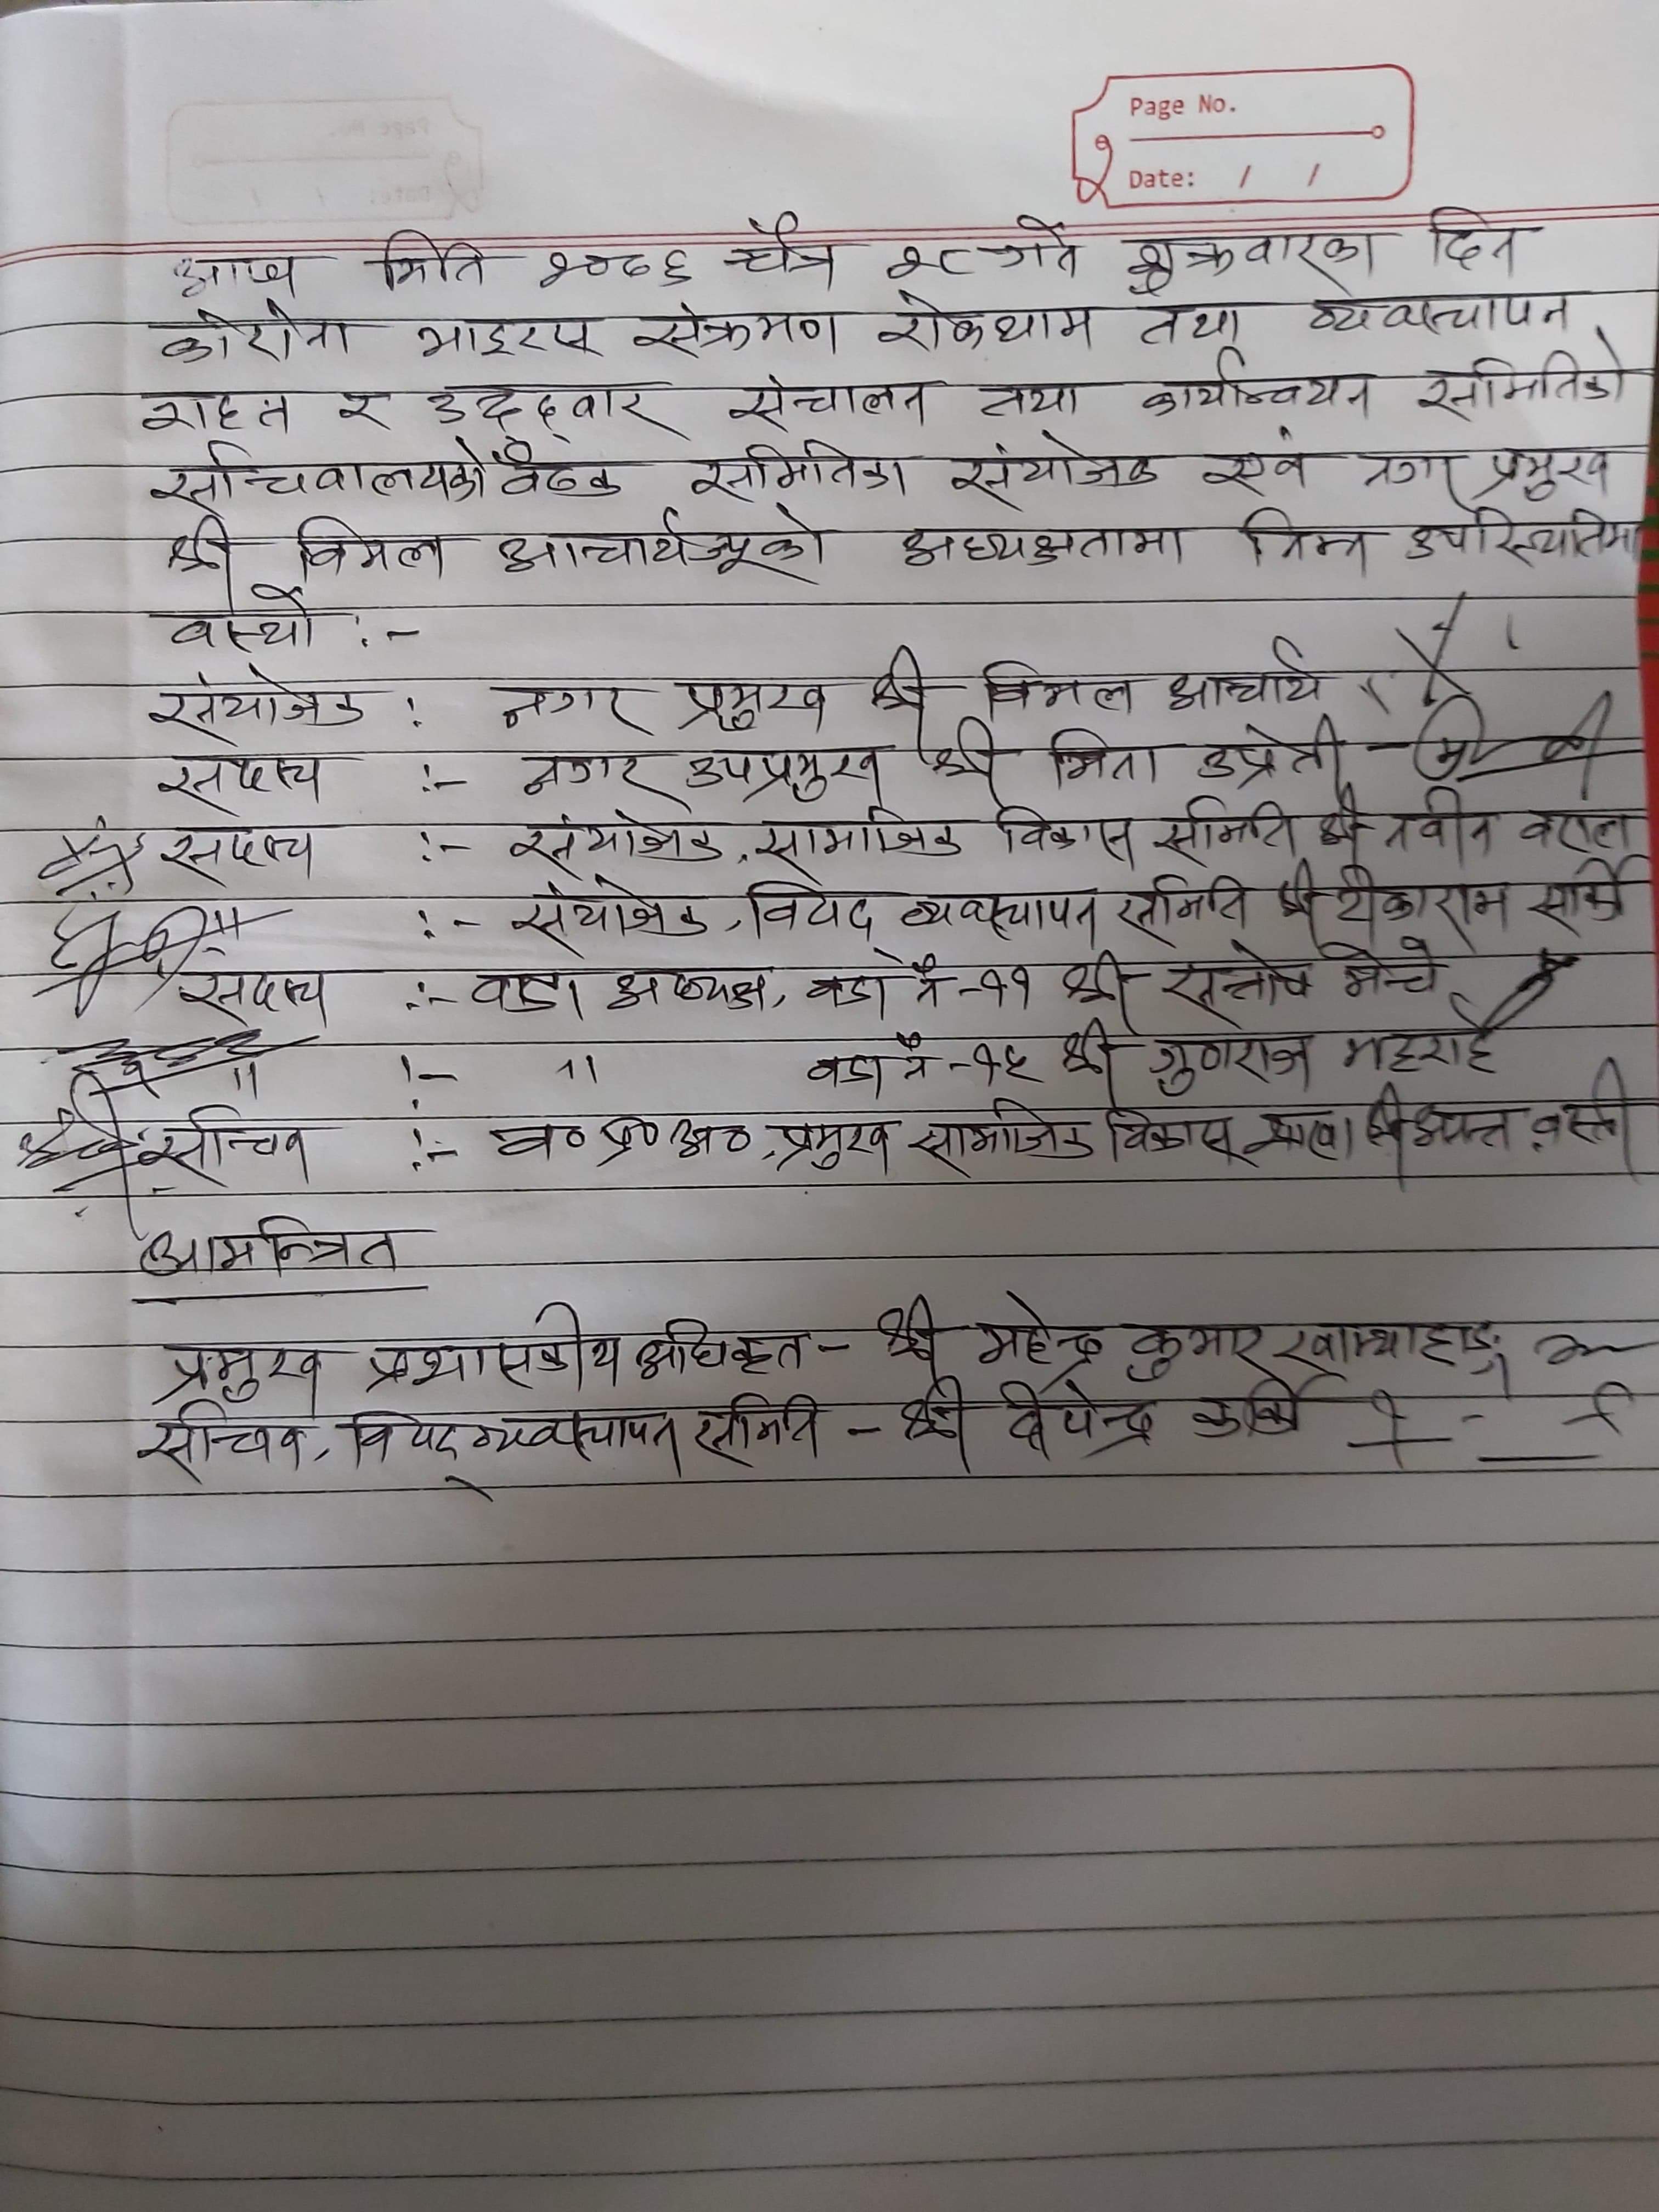 Page No.
Date: / /
आज मिति २०७६ चैत्र २८ गते शुक्रवारका दिन
कोरोना भाइरस संक्रमण रोकथाम तथा व्यवस्थापन,
राहत र उद्द्वार संचालन तथा कार्यान्वयन समितिको
सचिवालयको बैठक समितिका संयोजक एवं नगर प्रमुख
श्री विमल आचार्यज्यूको अध्यक्षतामा निम्न उपस्थितिमा
बस्यो :-
संयोजक : नगर प्रमुख श्री विमल आचार्य
सदस्य :- नगर उपप्रमुख श्री मिना उप्रेती -
सदस्य :- संयोजक, सामाजिक विकास समिति श्री नवीन बराल
:- संयोजक, विपद् व्यवस्थापन समिति श्री टीकाराम सार्की
सदस्य :- वडा अध्यक्ष, वडा नं -११ श्री सन्तोष मेन्चे
" :- " वडा नं -१५ श्री गुणराज भट्टराई
सचिव :- व० प्र० अ०, प्रमुख सामाजिक विकास शाखा श्री बस्नेत
आमन्त्रित
प्रमुख प्रशासकीय अधिकृत - श्री महेन्द्र कुमार खाम्याहाङ्ग
सचिव, विपद् व्यवस्थापन समिति - श्री दीपेन्द्र कार्की